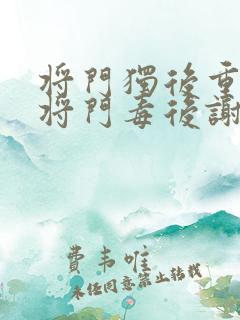 將門獨後重
將門毒後謝
費韦唯
未经同意禁止转载